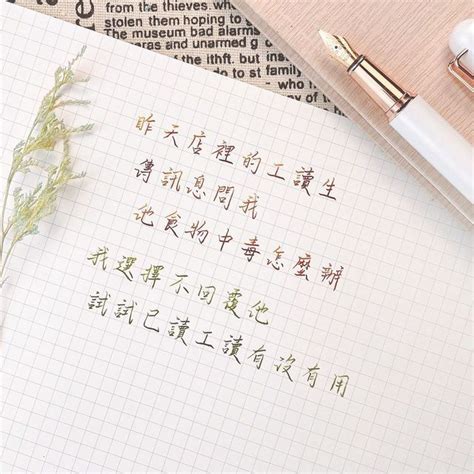 from the thieves. who
stolen them hoping to
The museum bad alarms
and unarmed g
the ithft. but
to st family
昨天店裡的工讀生
傳訊息問我
他食物中毒怎麼辦
我選擇不回覆他
試試已讀工讀有沒有用